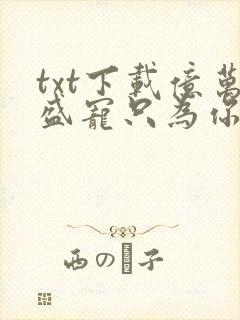 txt下載億萬
盛寵只為你
西の子